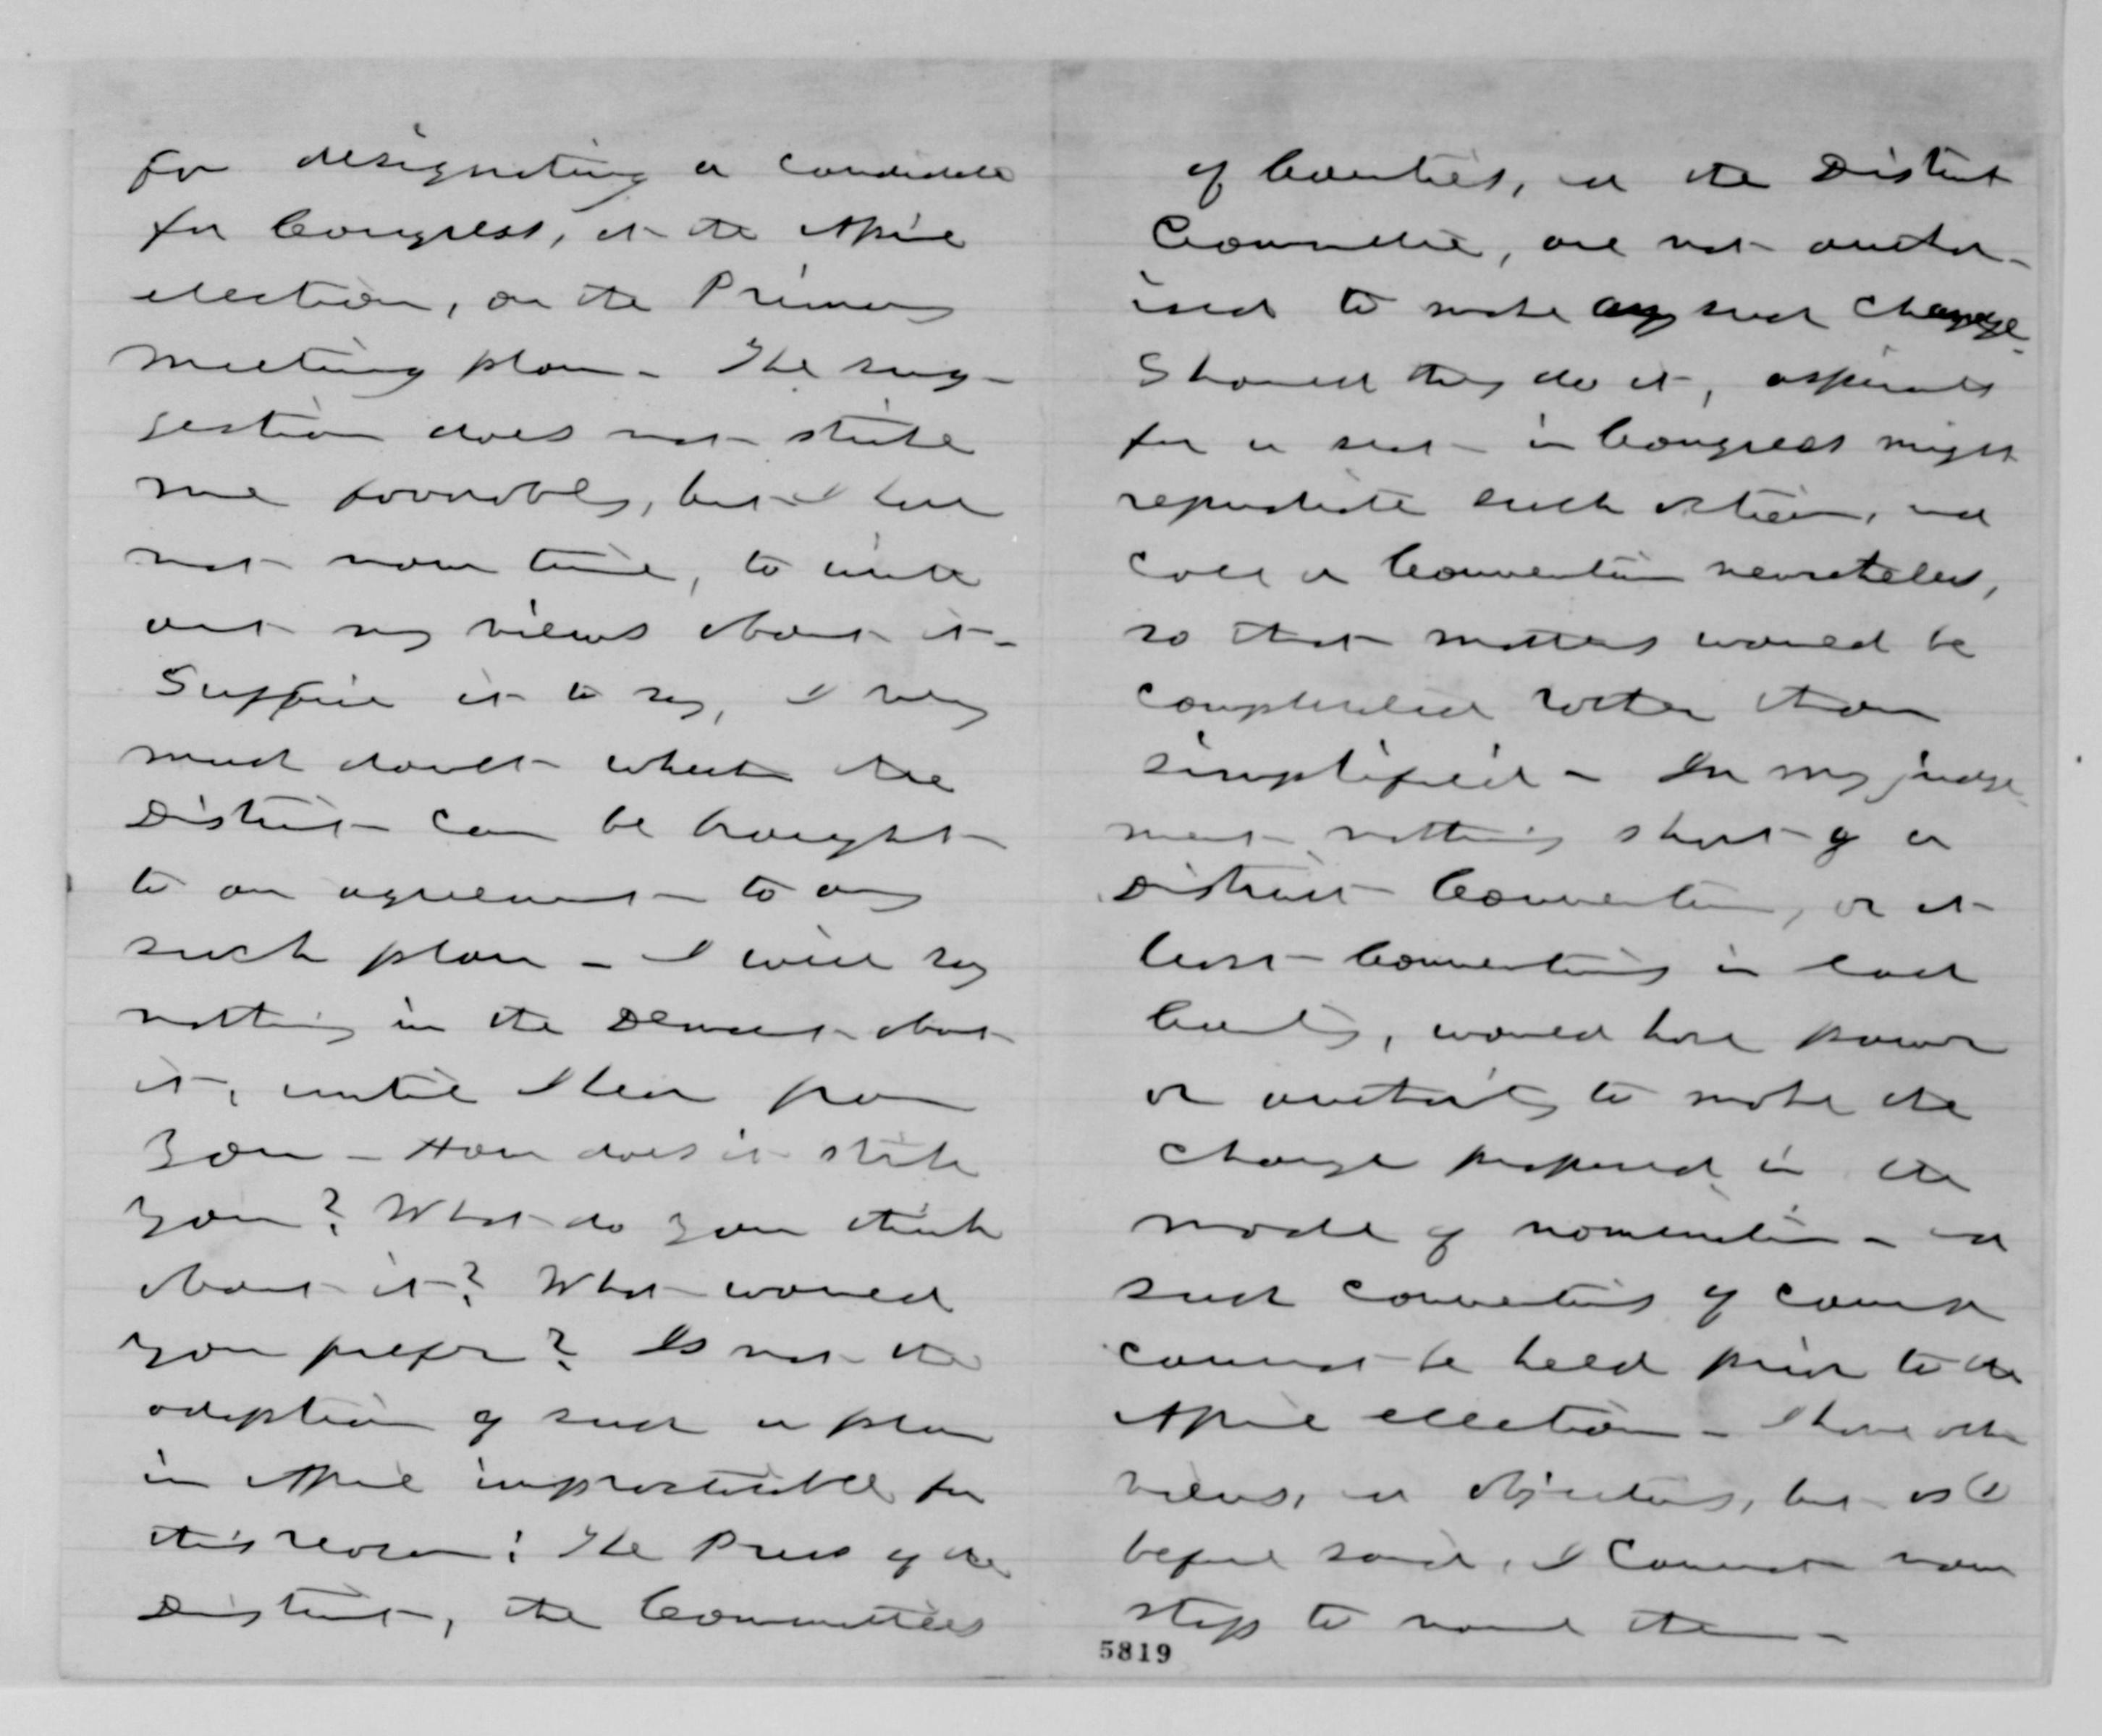 for designating a candidate
for Congress, at the April
election, on the Primary
meeting plan - The sug-
gestion does not strike
me favorably, but I have
not now time, to write
out my views about it -
Suffice it to say, I very
much doubt whether the
District can be brought
to an agreement to any
such plan - I will say
nothing in the Democrat about
it, until I hear from
you - How does it strike
you? What do you think
about it? What would
you prefer? Is not the
adoption of such a plan
in April impracticable for
this reason: The Press of the
District, the Committees
of Counties, and the District
Committee, are not author-
ized to make any such change.
Should they do it, aspirants
for a seat in Congress might
repudiate such action, and
call a Convention nevertheless,
so that matters would be
complicated rather than
simplified - In my judge-
ment nothing short of a
District Convention, or at
least Conventions in each
County, would have power
or authority to make the
change proposed in the
mode of nomination - and
such conventions of course
cannot be held prior to the
April election - I have other
views, and objections, but as I
before said, I cannot now
stop to name them -
5819